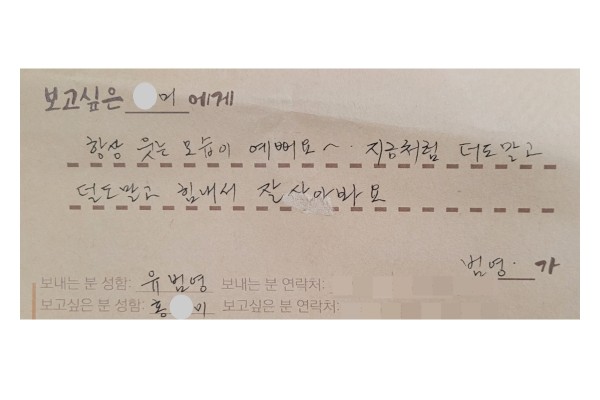 보고싶은 미에게
항상 웃는 모습이 예뻐요~. 지금처럼 더도말고
덜도말고 힘내서 잘 살아봐요
범영. 가
보내는 분 성함: 유범영 보내는 분 연락처:
보고싶은 분 성함: 홍 미 보고싶은 분 연락처: